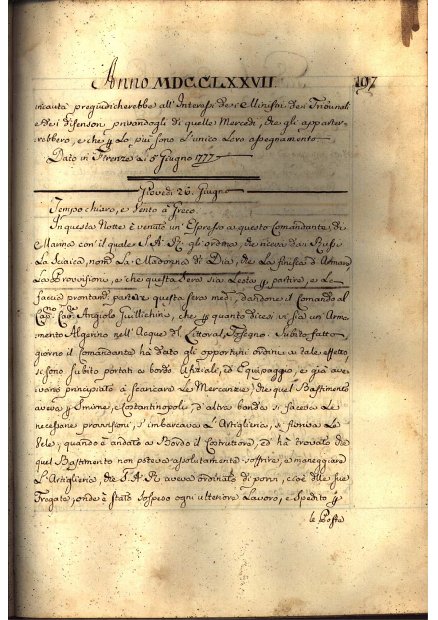 Anno MDCCLXXVII. 107
incauta pregiudicherebbe all'Interessi dei Ministri dei Tribunali
e dei difensori privandogli di quelle Mercedi, che gli apparter-
rebbero, e che p Lo più sono L'unico Loro assegnamento
Dato in Firenze a: 5 Giugno 1777
Giovedì 26. Giugno
Tempo chiaro, e Vento a Greco.
In questa Notte è venuto un' Espresso a questo Comandante di
Marina con il quale S. A. R. gli ordina, che riceva dai Russi
La Saica, nom. La Madonna di Dia, che La finisca d' Armare,
La Provvisioni, e che questa Sera sia Lesta p partire, e La
faccia prontam. partire questa sera med., dandone il Comando al
Cap. Cav. Angiolo Guillichini, che p quanto dicesi vi sia un' Arma-
mento Algerino nell' Acque del Littoral Toscano. Subito fatto
giorno il Comandante ha dato gli opportuni ordini, a tale effetto
si sono subito portati a bordo Ufiziali, ed Equipaggio, e già ave-
vano principiato à scaricare Le Mercanzie, che quel Bastimento
aveva p Smirne, e Costantinopoli, d'altra banda si faceva Le
necessarie provvisioni, s'imbarcava L'Artiglieria, si
Vele; quando è andato a Bordo il Costrutore, ed hà trovato che
quel Bastimento non poteva assolutamente soffrire, e maneggiare
L'Artiglieria, che S. A. R. aveva ordinato di porvi, cioè delle sue
Fregate, onde è stato sospeso ogni ulteriore Lavoro, e spedito p
le Poste